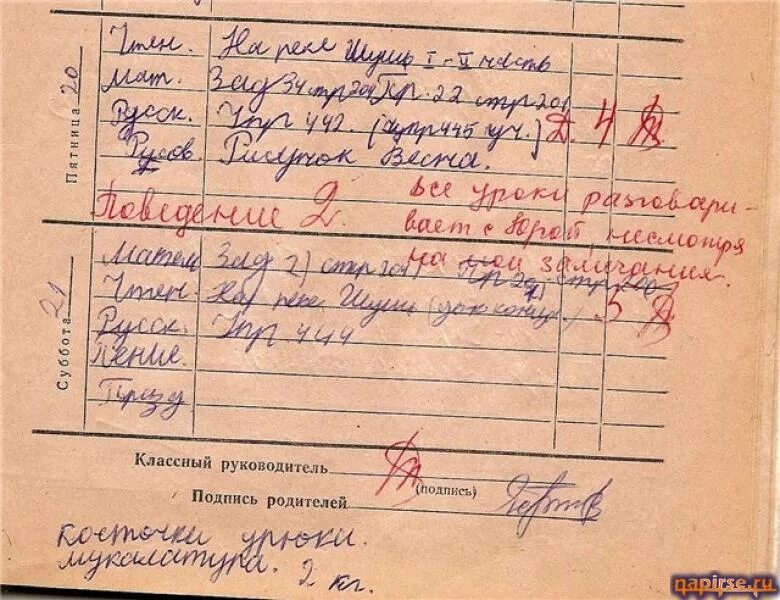 Пятница 20
Чтен. На реке Шушь I-II часть
мат. Зад 34 стр 201 Пр. 22 стр 201
Русск. Упр 442. (упр 445 уч.) Д. 4
Рисов. Рисунок Весна.
Поведение 2. Все уроки разговари-
вает с Юрой, несмотря
на мои замечания.
Суббота 21
Матем Зад 2) стр 204
Чтен. На реке Шушь (до конца) 5
Русск. Упр. 444
Пение.
Классный руководитель
(подпись)
Подпись родителей
косточки урюки.
мукалатура. 2 кг.
napirse.ru